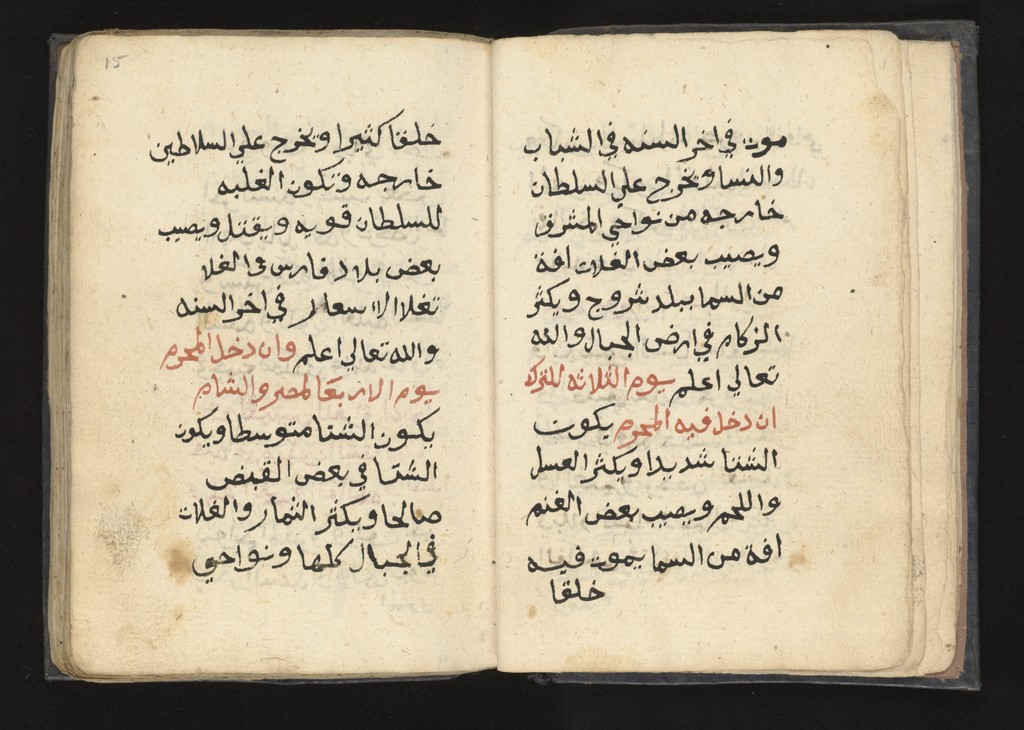 موت في اخر السنه في الشباب
والنسا ويخرج علي السلطان
خارجه من نواحي المشرق
ويصيب بعض الغلات افة
من السما ببلد شروج ويكثر
الزكام في ارض الجبال والله
تعالي اعلم يوم الثلاثه للترك
ان دخل فيه المحرم يكون
الشتا شديدا ويكثر العسل
واللحم ويصيب بعض الغنم
افة من السما يموت فيه
خلقا
15
خلقا كثيرا ويخرج علي السلاطين
خارجه وتكون الغلبه
للسلطان قويه ويقتل ويصيب
بعض بلاد فارس في الغلا
تغلا الاسعار في اخر السنه
والله تعالي اعلم وان دخل المحرم
يوم الاربعا لمصر والشام
يكون الشتا متوسطا ويكون
الشتا في بعض القبض
صالحا ويكثر الثمار والغلات
في الجبال كلها ونواحي